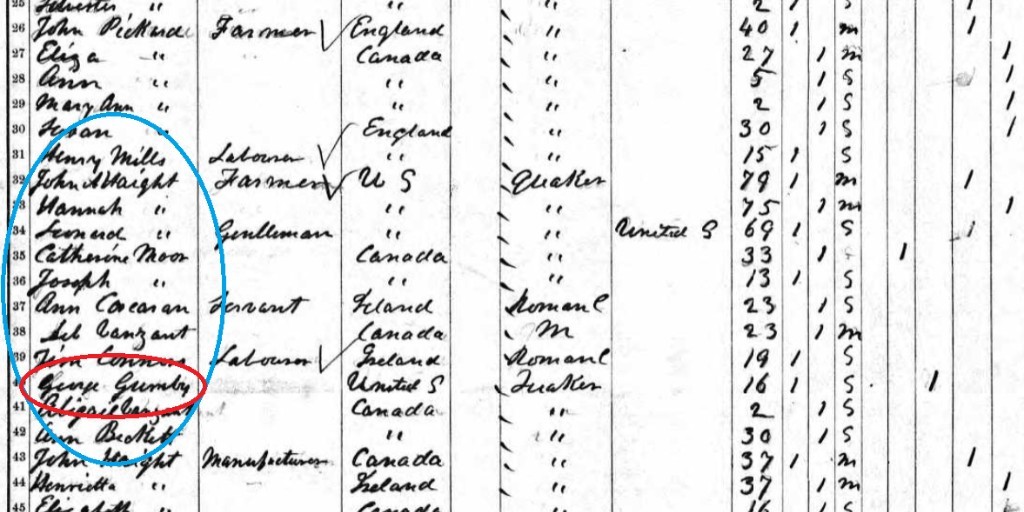 25 Silvester 2 1 S 1
26 John Pickard Farmer England " 40 1 m 1
27 Eliza " Canada " 27 1 m 1
28 Ann " " " 5 1 S 1
29 Mary Ann " " " 2 1 S 1
30 Susan " England " 30 1 S 1
31 Henry Mills Labourer " " 15 1 S
32 John Haight Farmer U S Quaker 79 1 m 1
33 Hannah " " " 75 1 m 1
34 Leonard " Gentleman " " United S 69 1 S 1
35 Catherine Moor Canada " 33 1 S 1
36 Joseph " " " 13 1 S
37 Ann Corcoran Servant Ireland Roman C 23 1 S
38 Vanzant Canada M 23 1 m
39 Connors Labourer Ireland Roman C 19 1 S
40 George Gumby United S Quaker 16 1 S 1
41 Abigail Vanzant Canada " 2 1 S
42 Ann Beckett " " 30 1 S
43 John Haight Manufacturer Canada " 37 1 m 1
44 Henrietta " Ireland " 37 1 m 1
45 Elizabeth " Canada 16 S